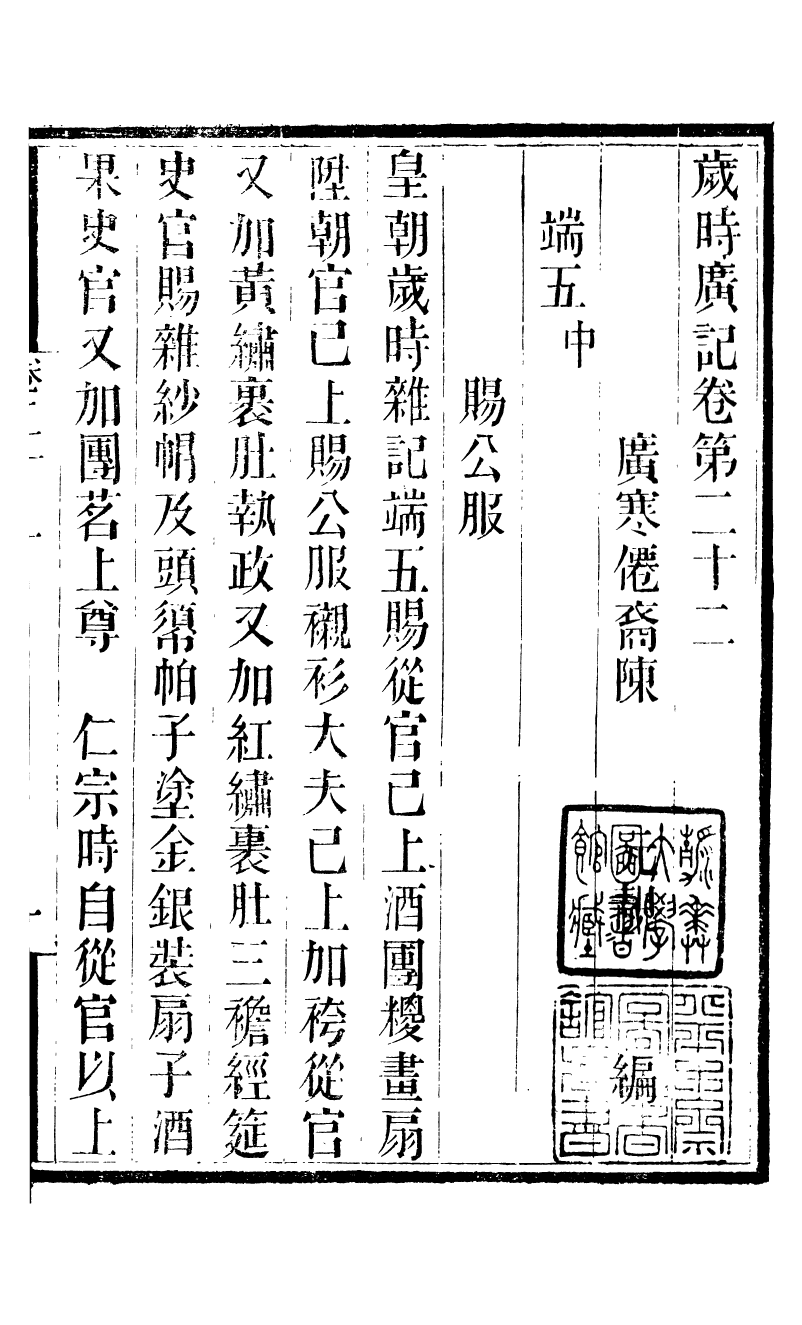 歲時廣記卷第二十二
廣寒僊裔陳 編
端五中
賜公服
皇朝歲時雜記端五賜從官已上酒團糭畫扇
陞朝官已上賜公服襯衫大夫已上加袴從官
又加黃繡裹肚執政又加紅繡裹肚三襜經筵
史官賜雜紗帽及頭帬帕子塗金銀裝扇子酒
果史官又加團茗上尊 仁宗時自從官以上